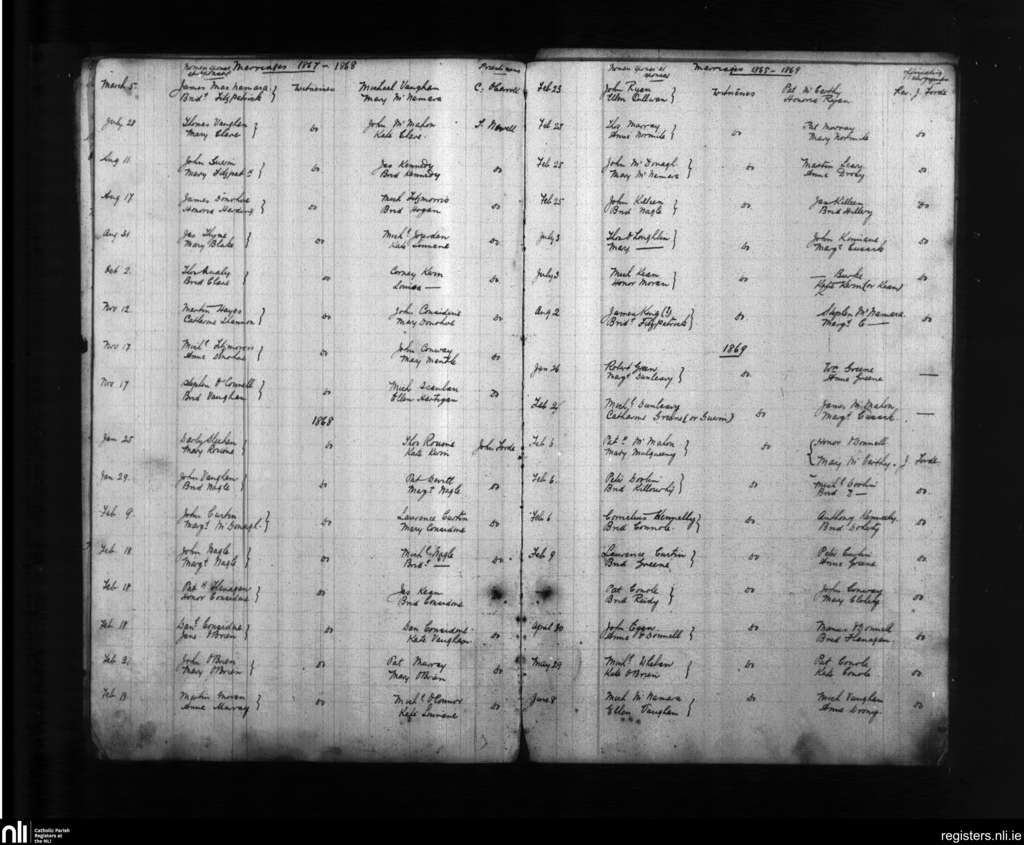 Marriages 1867 - 1868
March 5 James Macnamara } Witnesses Michael Vaughan C. O'Carroll
Brid.t Fitzpatrick Mary McNamara
July 28 Thomas Vaughan } do John McMahon T. Newell
Mary Clare Kate Clare
Aug 11 John } do Jas Kennedy do
Mary Fitzpat.k Brid Kennedy
Aug 17 James Donohue } do Mich Fitzmorris do
Honora Harding Brid Hogan
Aug 31 Jas Thyne } do Mich.l Jourdan do
Mary Blake Kate Linnane
Oct 2. do Corney Kerin
Brid Clare Louisa —
Nov 12 Martin Hayes } do John Considine do
Catharine Shannon Mary Donohue
Nov 17 Mich.l Fitzmorris } do John Conway do
Anne Donohue Mary
Nov 17 Stephen O'Connell } do Mich Scanlan do
Brid Vaughan Ellen Hartigan
1868
Jan 25 } do Thos Rouine John Forde
Mary Rouine Kate Kerin
Jan 29. John Vaughan } do Pat do
Brid Nagle Marg.t Nagle
Feb 9. John Curtin } do Laurence Curtin do
Marg.t McDonagh Mary Considine
Feb 18 John Nagle } do Mich.l Nagle do
Marg.t Nagle Brid.t —
Feb 18 Pat.k Flanagan } do Jas Kean do
Honor Considine Brid Considine
Feb 18 Dan.l Considine } do Dan Considine do
Jane O'Brien Kate Vaughan
Feb 3. John O'Brien } do Pat Murray do
Mary O'Brien Mary O'Brien
Feb 13 Martin Moran } do Mich.l O'Connor do
Anne Murray Kate Linnane
Marriages 1868 - 1869
Feb 23 John Ryan } Witnesses Pat McCarthy Rev. J. Forde
Ellen Cullinan Honora Ryan
Feb 25 Thos Murray } do Pat Murray do
Anne Normile Mary Normile
Feb 25 John McDonagh } do Martin Leary do
Mary McNamara Anne
Feb 25 John Killeen } do Jas Killeen do
Brid Nagle Brid Hillery
July 3 Thos O'Loughlin } do John do
Mary — Marg.t Cusack
July 3 Mich Kean } do — Burke do
Honor Moran Kate Kerin (or Kean)
Aug 2 James King (?) } do Stephen McNamara do
Brid.t Fitzpatrick Marg.t C—
1869
Jan 26 Robert Green } do Wm Greene —
Marg.t Dunleavy Anne Greene
Feb 2 Mich.l Dunleavy do James McMahon —
Catharine Greene (or Guerin) Marg.t Cusack
Feb 6 Pat.k McMahon } do { Honor O'Connell
Mary Mulqueeny Mary McCarthy. J Forde
Feb 6. Peter } do Mich.l do
Brid Killourhy Brid ? —
Feb 6 Cornelius Hennelly } do Anthony Kennedy do
Brid Connole Brid. Doherty
Feb 9 Laurence Curtin } do Peter Curtin do
Brid Greene Anne Greene
Pat Conole } do John Conway do
Brid Reidy Mary
April 30 John Egan } do O'Connell do
Anne O'Donnell Brid Flanagan
May 29 Mich.l } do Pat Conole do
Kate O'Brien Kate Conole
June 8 Mich McNamara } do Mich Vaughan do
Ellen Vaughan Anne
nli
Catholic Parish
Registers at
the NLI
registers.nli.ie